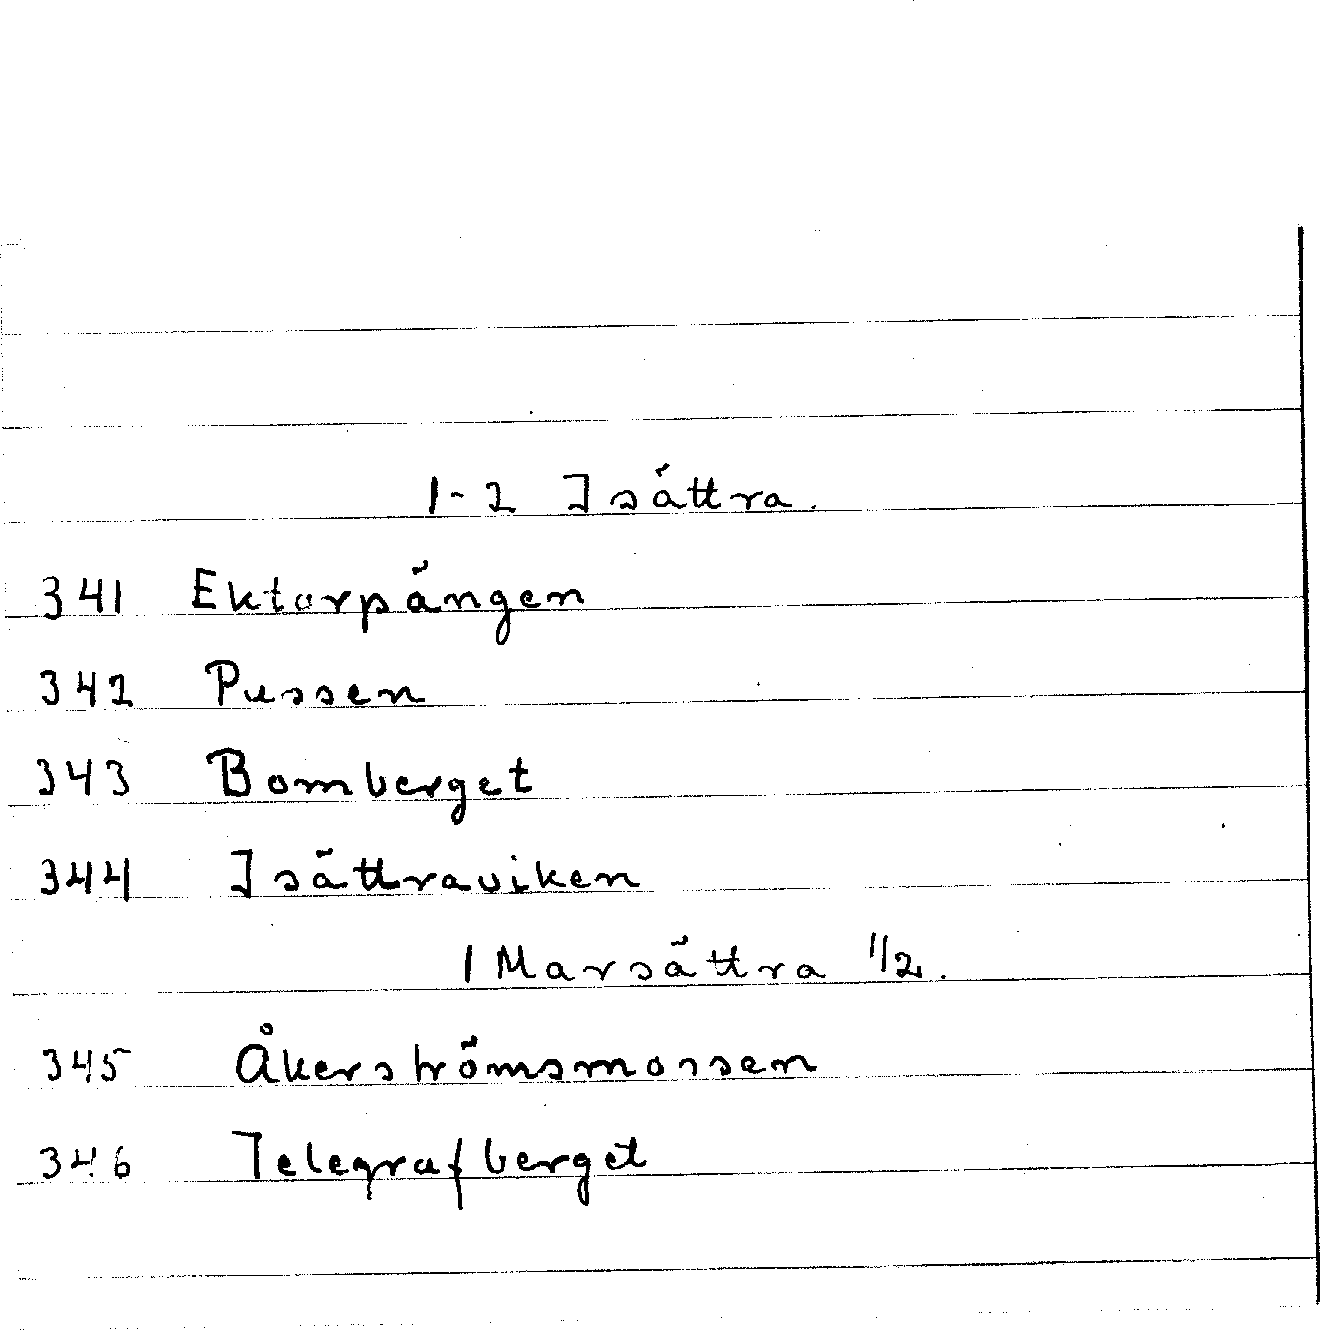 1-2 Isättra.
341 Ektorpängen
342 Pussen
343 Bomberget
344 Isättraviken
1 Marsättra 1/2.
345 Åkerströmsmossen
346 Telegrafberget